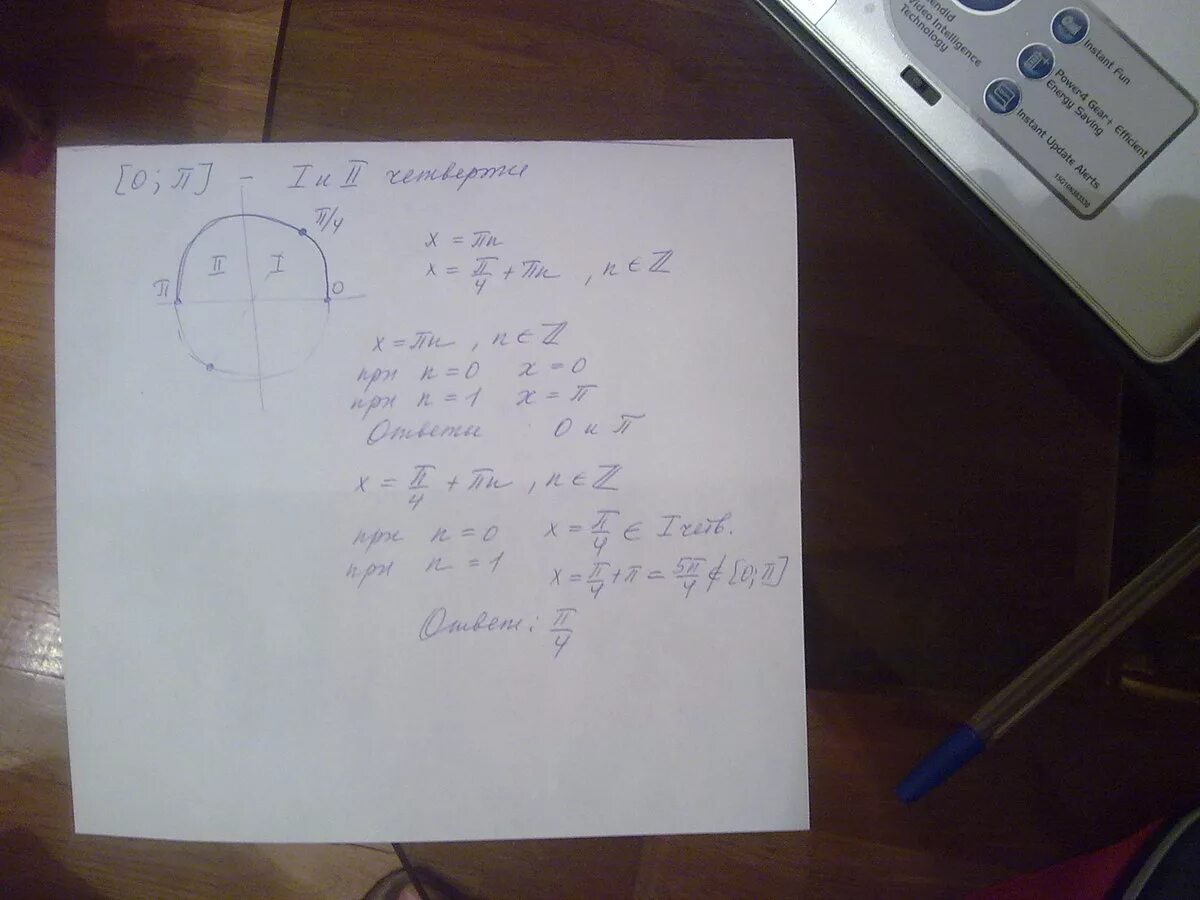 [0; π] - I и II четверти
π/4
II I
π 0
x = πn
x = π/4 + πn , n ∈ ℤ
x = πn , n ∈ ℤ
при n = 0 x = 0
при n = 1 x = π
Ответы 0 и π
x = π/4 + πn , n ∈ ℤ
при n = 0 x = π/4 ∈ I четв.
при n = 1 x = π/4 + π = 5π/4 ∉ [0; π]
Ответ: π/4
Splendid
Video Intelligence
Technology
Instant Fun
Power4 Gear+ Efficient
Energy Saving
Instant Update Alerts